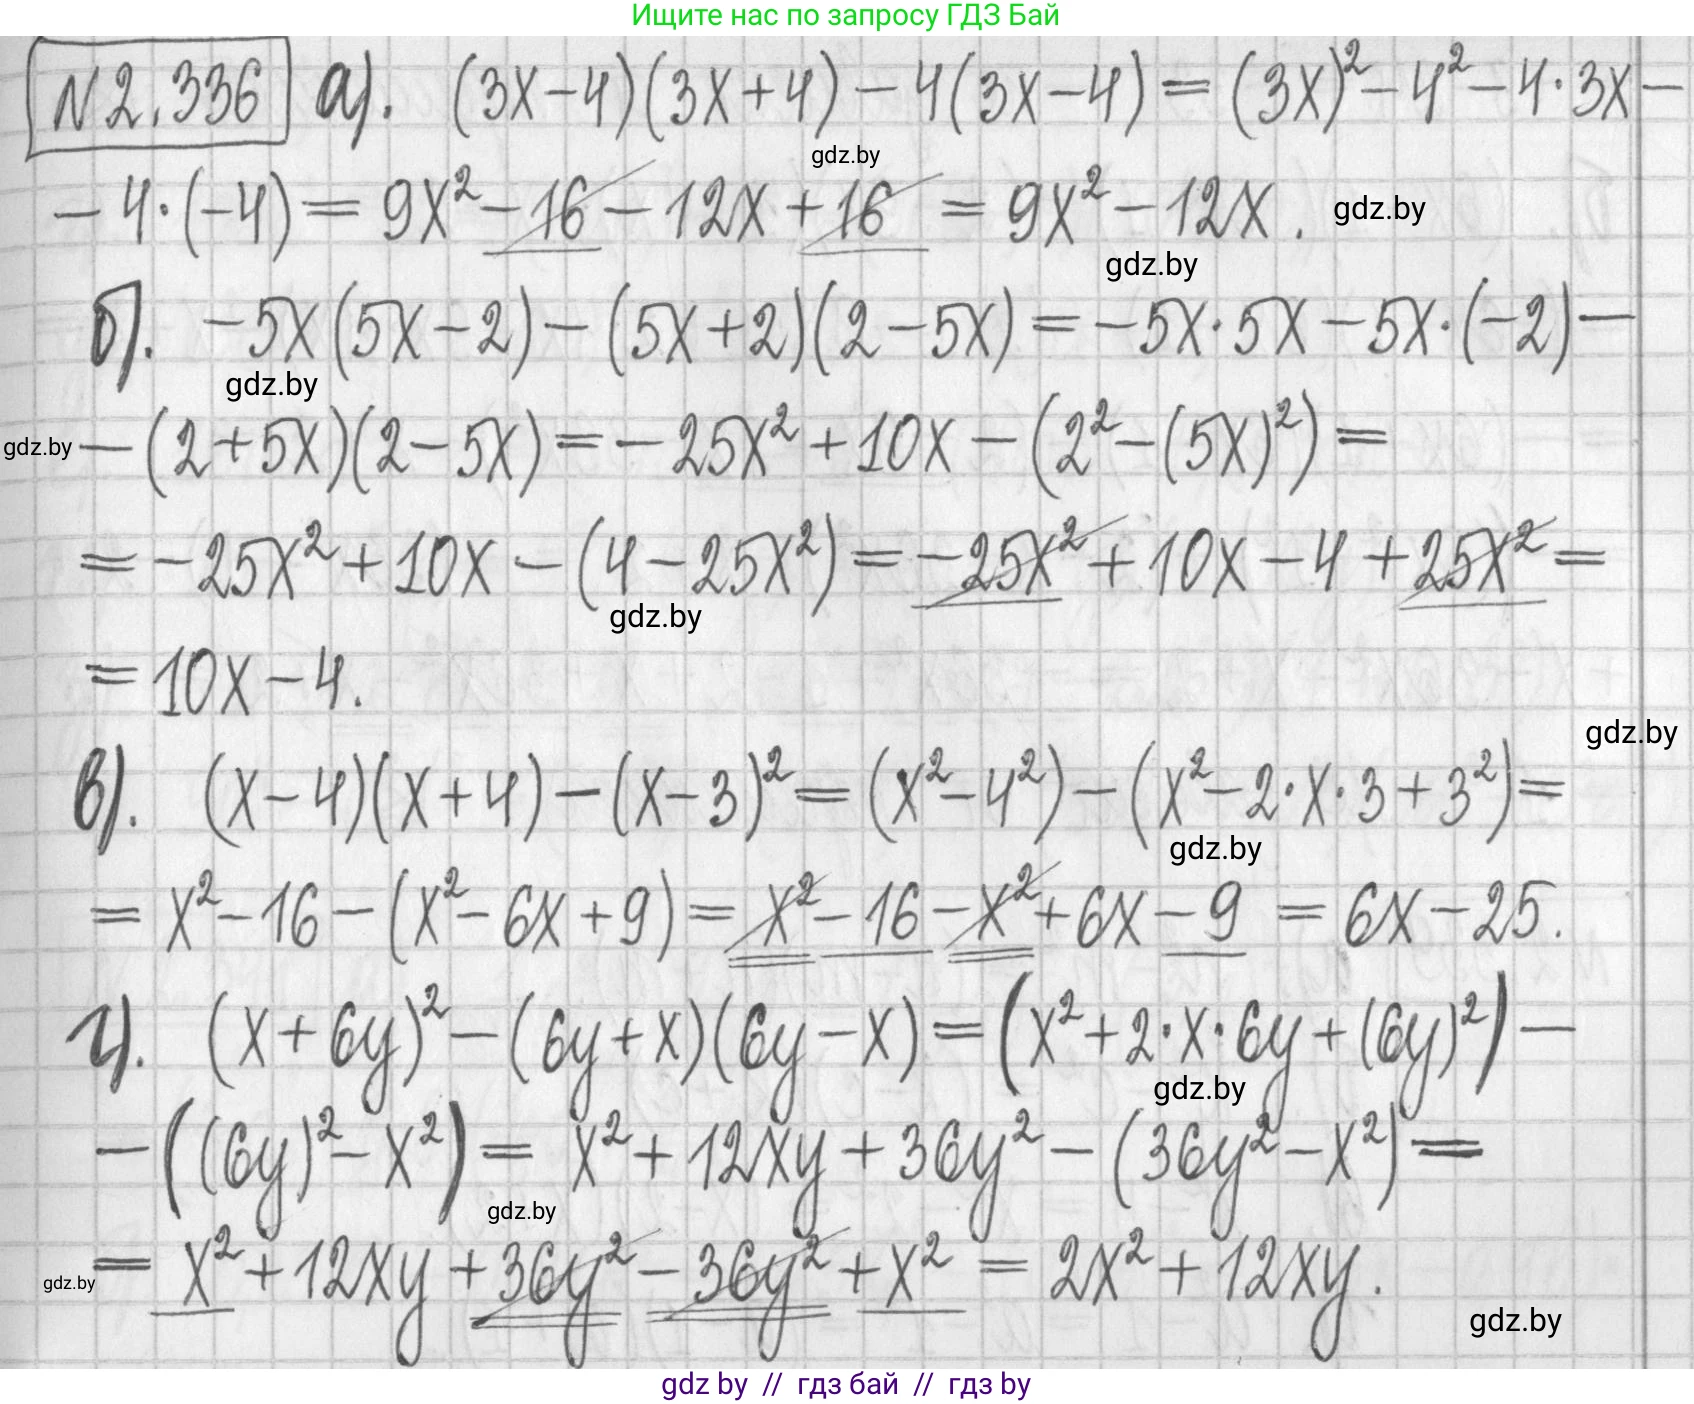 Ищите нас по запросу ГДЗ Бай
N2.336 а). (3x-4)(3x+4)-4(3x-4)=(3x)²-4²-4·3x-
gdz.by
-4·(-4)=9x²-16-12x+16=9x²-12x. gdz.by
gdz.by
б). -5x(5x-2)-(5x+2)(2-5x)=-5x·5x-5x·(-2)-
gdz.by
gdz.by -(2+5x)(2-5x)=-25x²+10x-(2²-(5x)²)=
=-25x²+10x-(4-25x²)=-25x²+10x-4+25x²=
gdz.by
=10x-4.
gdz.by
в). (x-4)(x+4)-(x-3)²=(x²-4²)-(x²-2·x·3+3²)=
gdz.by
=x²-16-(x²-6x+9)=x²-16-x²+6x-9=6x-25.
г). (x+6y)²-(6y+x)(6y-x)=(x²+2·x·6y+(6y)²)-
gdz.by
-((6y)²-x²)=x²+12xy+36y²-(36y²-x²)=
gdz.by
gdz.by =x²+12xy+36y²-36y²+x²=2x²+12xy.
gdz.by
gdz by // гдз бай // гдз by